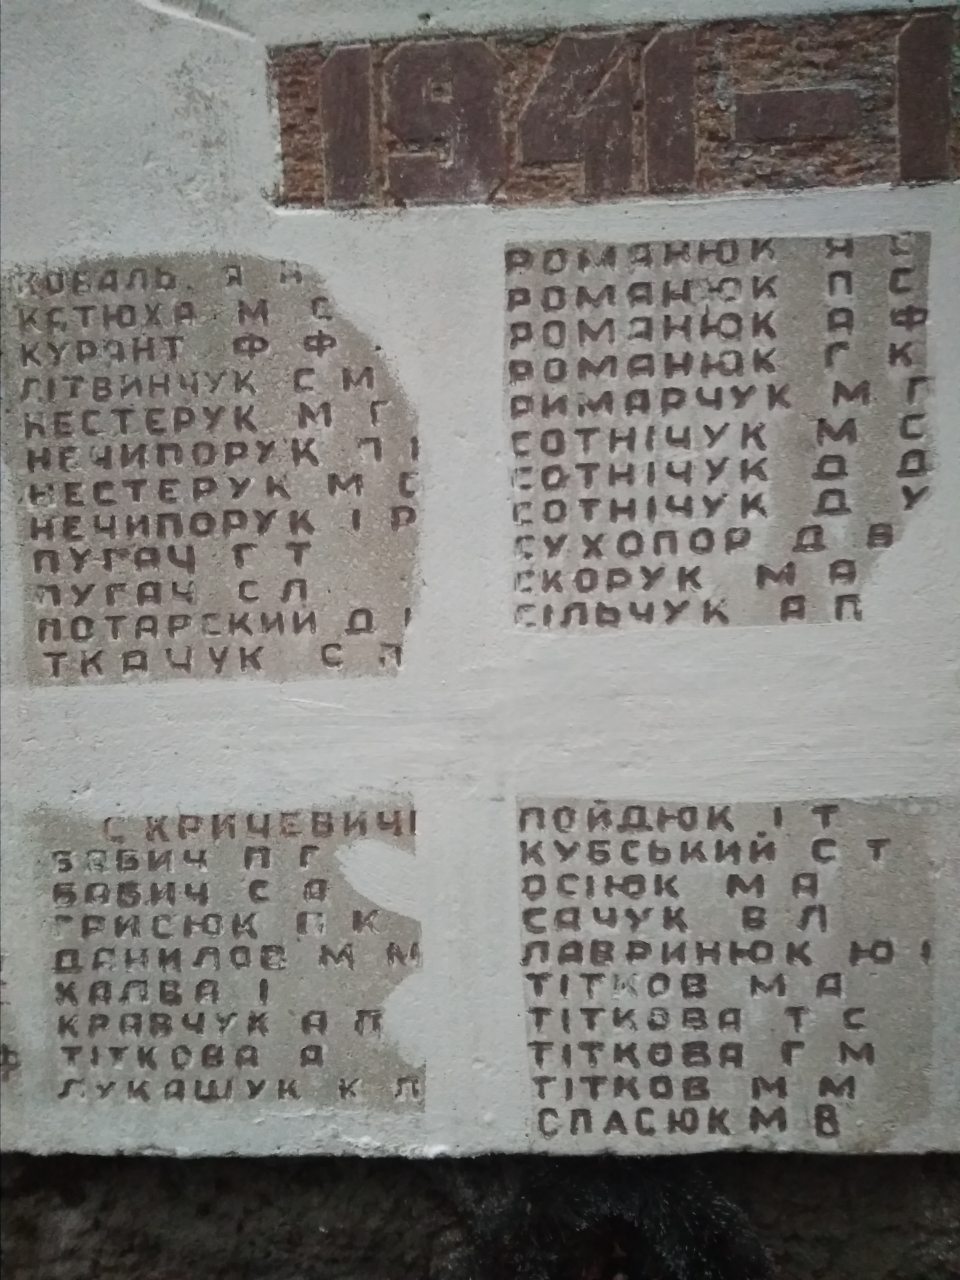 1941-1
КОВАЛЬ. Я Н
КОТЮХА М С
КУРАНТ Ф Ф
ЛІТВИНЧУК С М
НЕСТЕРУК М Г
НЕЧИПОРУК П І
НЕСТЕРУК М С
НЕЧИПОРУК І Р
ПУГАЧ Г Т
ПУГАЧ С Л
ПОТАРСКИЙ Д І
ТКАЧУК С П
РОМАНЮК Я
РОМАНЮК П С
РОМАНЮК А Ф
РОМАНЮК Г К
РИМАРЧУК М Г
СОТНІЧУК М С
СОТНІЧУК Д Д
СОТНІЧУК Д У
СУХОПОР Д В
СКОРУК М А
СІЛЬЧУК А П
С КРИЧЕВИЧІ
БАБИЧ П Г
БАБИЧ С Д
ГРИСЮК П К
ДАНИЛОВ М М
КАЛВА І
КРАВЧУК А П
ТІТКОВА А
ЛУКАШУК К Л
ПОЙДЮК І Т
КУБСЬКИЙ С Т
ОСІЮК М А
САЧУК В Л
ЛАВРИНЮК Ю І
ТІТКОВ М А
ТІТКОВА Т С
ТІТКОВА Г М
ТІТКОВ М М
СПАСЮК М В